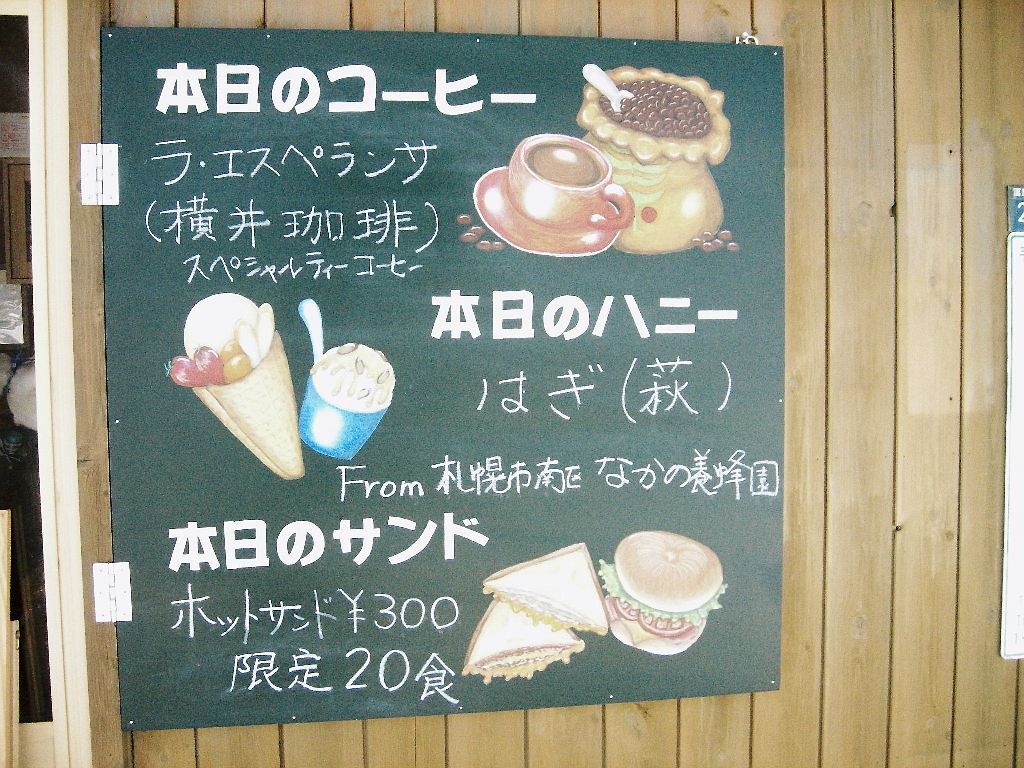 本日のコーヒー
ラ・エスペランサ
(横井珈琲)
スペシャルティーコーヒー
本日のハニー
はぎ(萩)
From 札幌市南区 なかの養蜂園
本日のサンド
ホットサンド¥300
限定20食